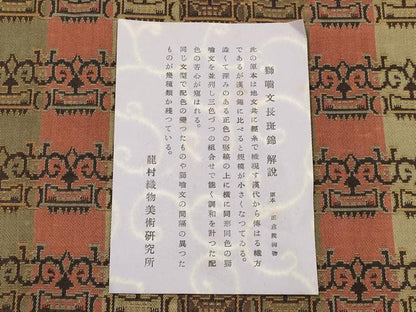 獅噛文長斑錦 解說 原本 正倉院御物
此の原本は地文共に經糸で織現す漢代から傳はる織方
であるが漢の錦に比べると規模が小さくなつてゐる。
澁くて深みのある底色の竪縞の上に横に同形同色の獅
噛文を並列し三色づつの組合せで能く調和を計つた配
色の苦心が窺はれる。
同じ文型で配色の變つたものや獅噛文の間隔の異つた
ものが幾種類か殘つている。
龍村織物美術研究所